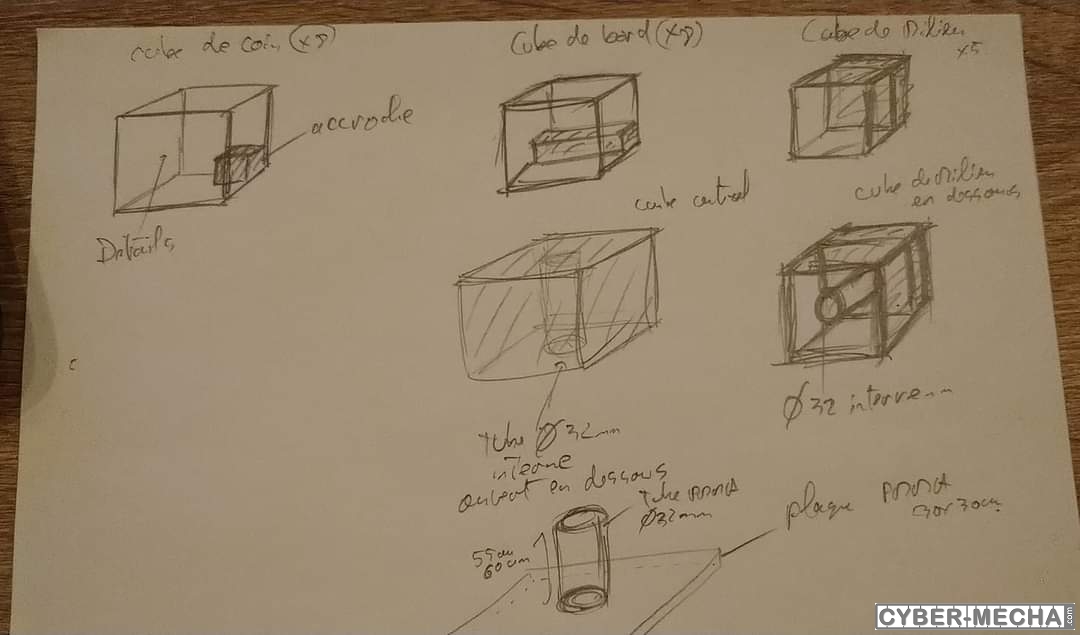 cube de coin (x8)
Cube de bord (x8)
Cube de Milieu
x5
accroche
Détails
cube central
cube de Milieu
en dessous
tube Ø 32mm
interne
ouvert en dessous
Ø 32 interne
tube PMMA
Ø32mm
55 ou
60cm
plaque PMMA
30x30cm
CYBER-MECHA.com